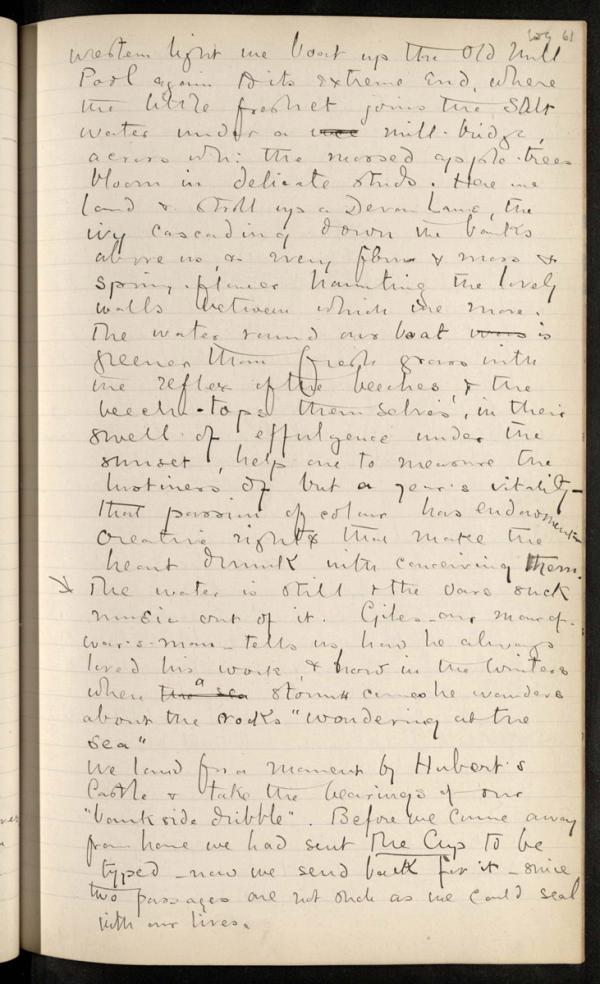 61
western light we boat up the Old Mill
Pool again to its extreme end, where
the little freshet joins the salt
water under a mill-bridge,
across wh: the mossed apple-trees
bloom in delicate studs. Here we
land & stroll up a Devon Lane, the
ivy cascading down the banks
above us, & every fern & moss &
spring-flower haunting the lovely
walls between which we move.
The water round our boat was is
greener than fresh grass with
the reflex of the beeches, & the
beech-tops themselves, in their
swell of effulgence under the
sunset, help one to measure the
lustiness of but a year's vitality—
that passion of colour has endowments
creative rights that make the
heart drunk with conceiving them.
The water is still & the oars suck
music out of it. Giles – our man-of-
war's-man – tells us how he always
loved his work, & how in the Winters
when the a sea storm comes he wanders
about the rocks "wondering at the
sea"
We land for a moment by Hubert's
Castle & take the bearings of our
"bankside dribble". Before we came away
from home we had sent The Cup to be
typed – now we send back for it – since
two passages are not such as we could seal
with our lives.